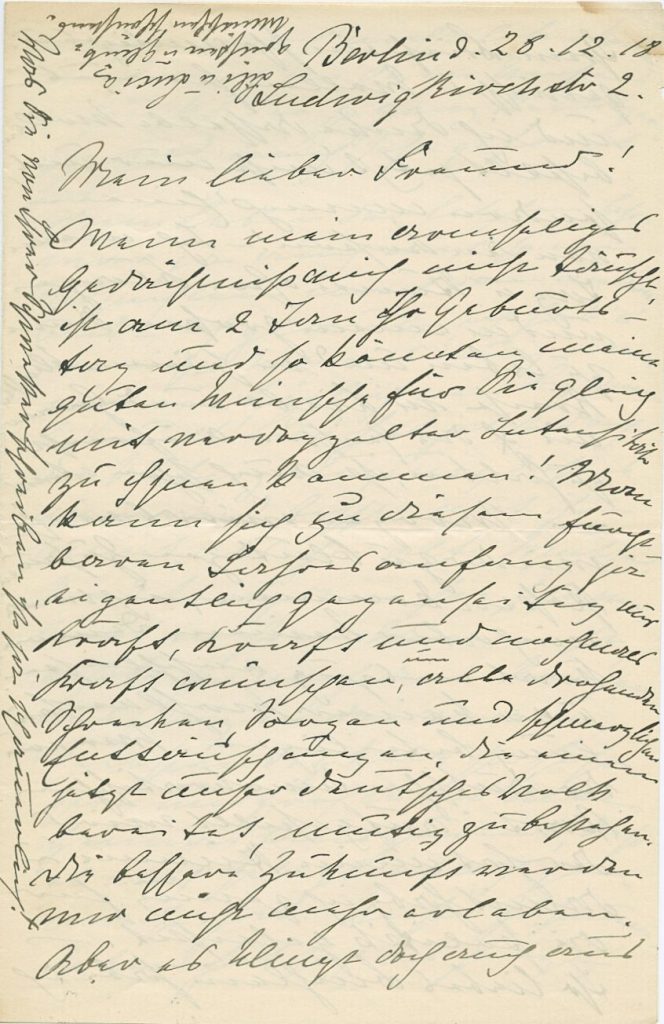 Berlin d. 28.12.18
Ludwigkirchstr 2.
Mein lieber Freund!
Wenn mein armseliges
Gedächtniß mich nicht täuscht,
ist am 2 Jan Ihr Geburts-
tag und so könnten meine
guten Wünsche für Sie gleich
mit verdoppelter Intensität
zu Ihnen kommen! Man
kann sich zu diesem furcht-
baren Jahresanfang ja
eigentlich gegenseitig nur
Kraft, Kraft und nochmals
Kraft wünschen, um alle drohenden
Schrecken, Sorgen und schmerzlichen
Enttäuschungen, die einem
jetzt unser deutsches Volk
bereitet, mutig zu bestehen.
Die bessere Zukunft werden
wir nicht mehr erleben.
Aber es klingt doch auch aus